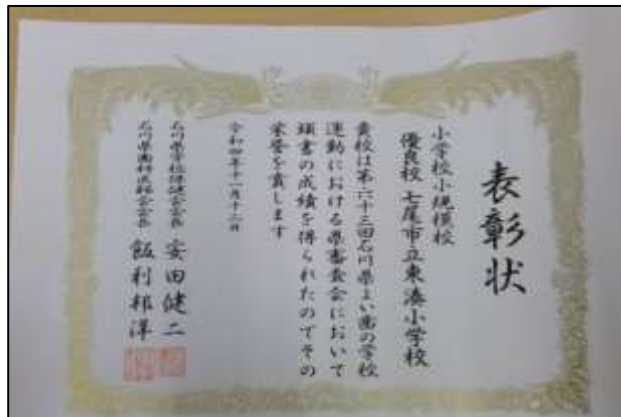 表彰状
小学校小規模校
優良校 七尾市立東湊小学校
貴校は第六十三回石川県よい歯の学校
運動における県審査会において
頭書の成績を得られたのでその
栄誉を賞します
令和四年十一月十二日
石川県学校保健会会長 安田健二
石川県歯科医師会会長 飯利邦洋